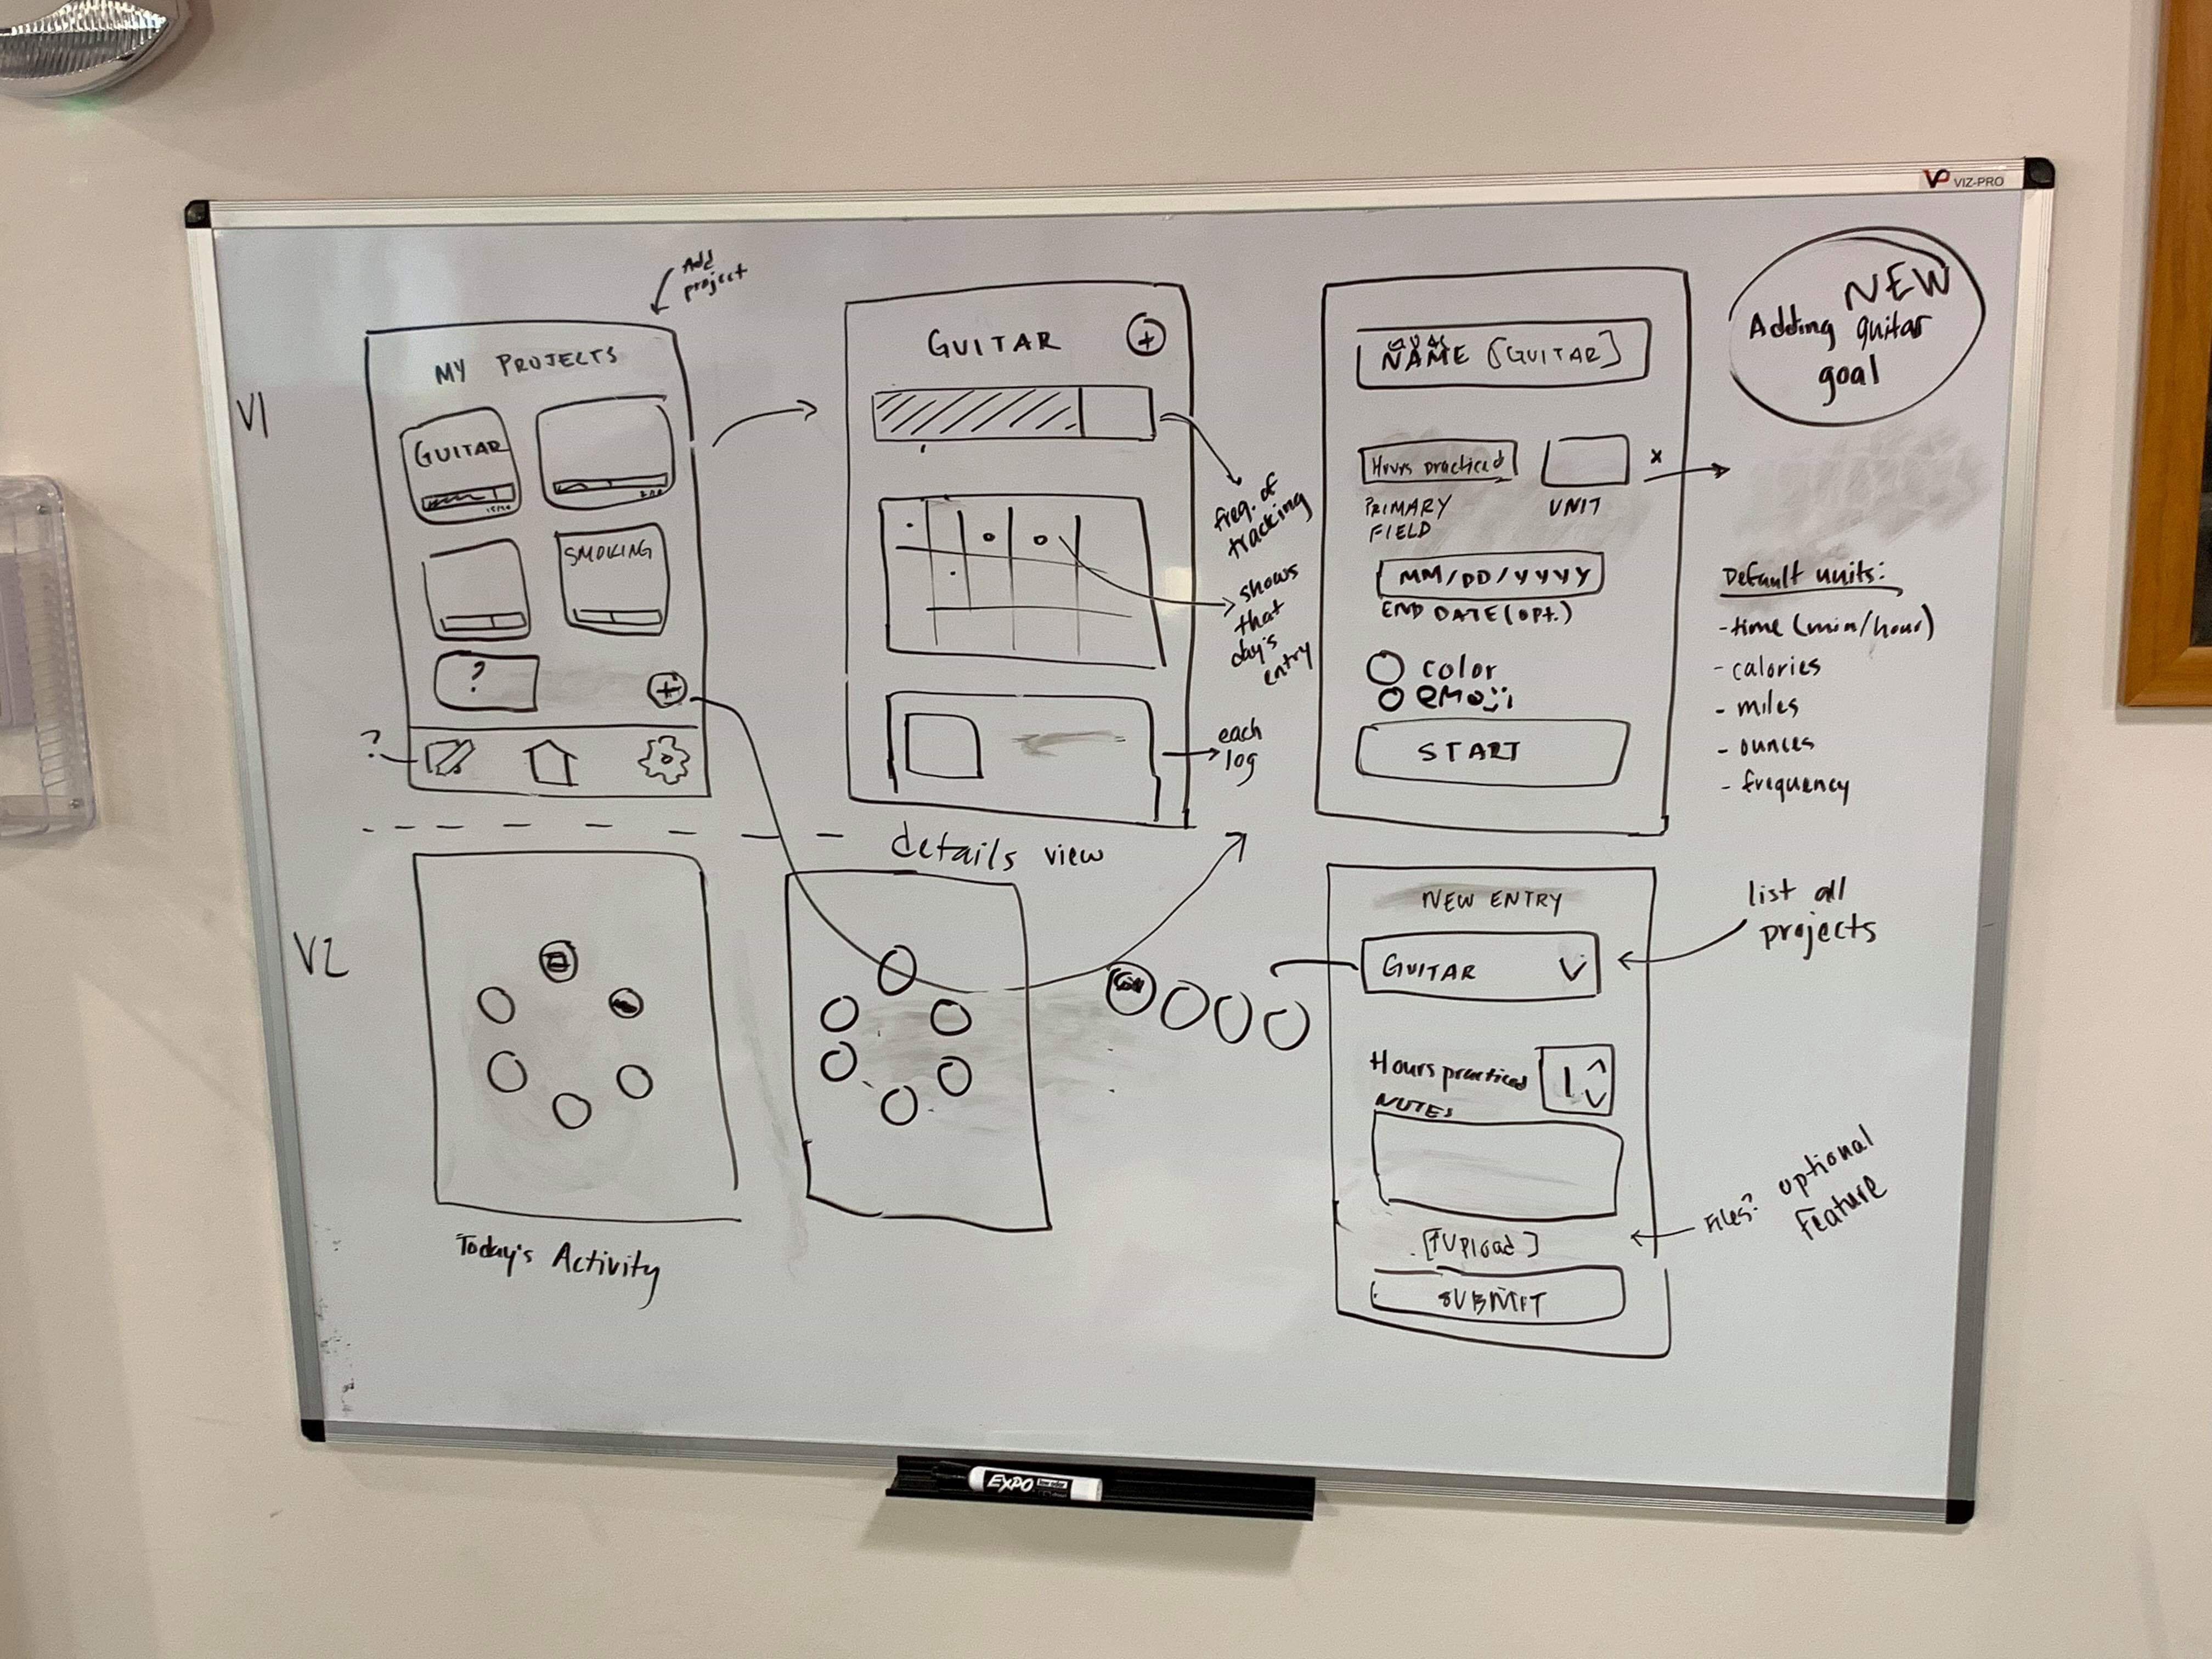 VP VIZ-PRO
V1
Add
project
MY PROJECTS
GUITAR
SMOKING
?
+
?
GUITAR
+
freq. of
tracking
shows
that
day's
entry
each
log
details view
NAME [GUITAR]
Hours practiced
PRIMARY
FIELD
UNIT
x
MM/DD/YYYY
END DATE (OPT.)
color
emoji
START
NEW
Adding guitar
goal
Default units:
- time (min/hour)
- calories
- miles
- ounces
- frequency
V2
Today's Activity
NEW ENTRY
GUITAR
list all
projects
Hours practiced
1
NOTES
[↑Upload]
SUBMIT
Files? optional
feature
EXPO